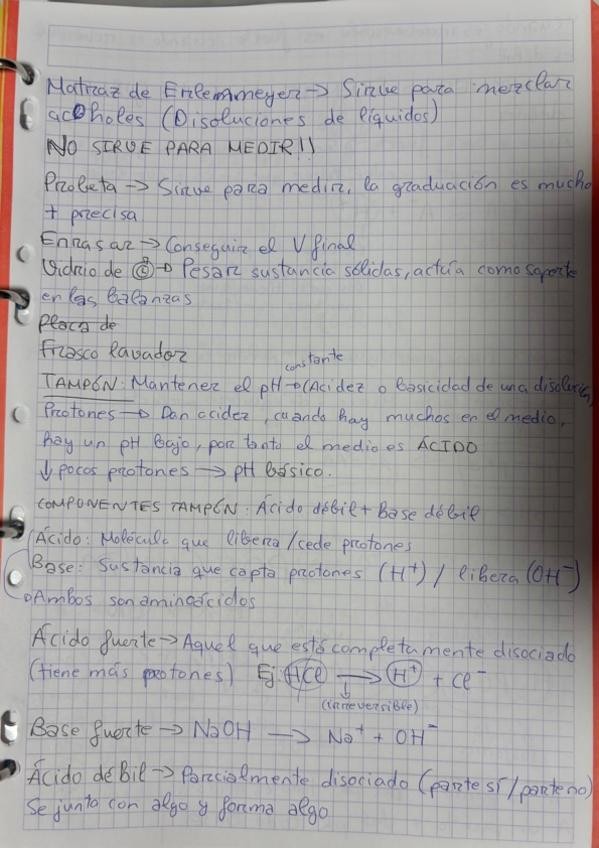 Matraz de Erlemmeyer → Sirve para mezclar
acoholes (Disoluciones de líquidos)
NO SIRVE PARA MEDIR!!
Probeta → Sirve para medir, la graduación es mucho
+ precisa
Enrasar → Conseguir el V final
Vidrio de → Pesar sustancia sólidas, actúa como soporte
en las balanzas
Placa de
Frasco lavador
constante
TAMPÓN: Mantener el pH → (Acidez o basicidad de una disolución)
Protones → Dan acidez, cuando hay muchos en el medio,
hay un pH bajo, por tanto el medio es ÁCIDO
↓ pocos protones → pH básico.
COMPONENTES TAMPÓN: Ácido débil + Base débil
Ácido: Molécula que libera/cede protones
Base: Sustancia que capta protones (H⁺) / libera (OH⁻)
→ Ambos son aminoácidos
Ácido fuerte → Aquel que está completamente disociado
(tiene más protones) Ej: HCl → H⁺ + Cl⁻
(irreversible)
Base fuerte → NaOH → Na⁺ + OH⁻
Ácido débil → Parcialmente disociado (parte sí/parte no)
Se junta con algo y forma algo